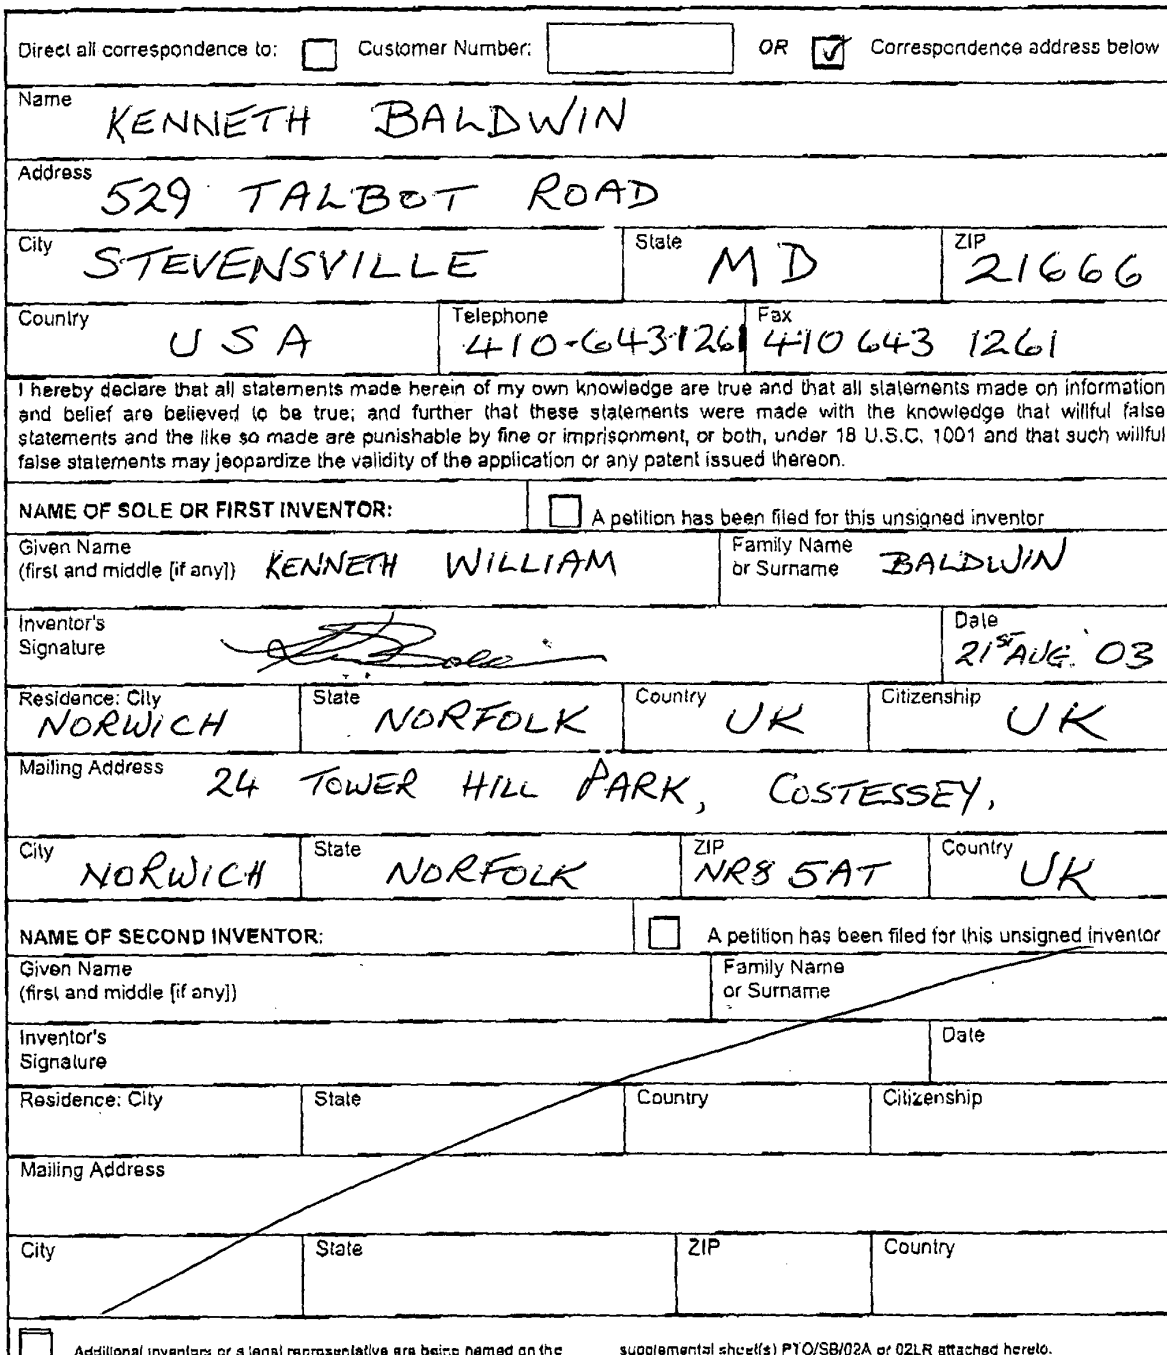 Direct all correspondence to: Customer Number: OR Correspondence address below
Name
KENNETH BALDWIN
Address
529 TALBOT ROAD
City STEVENSVILLE State MD ZIP 21666
Country USA Telephone 410-643-1261 Fax 410 643 1261
I hereby declare that all statements made herein of my own knowledge are true and that all statements made on information
and belief are believed to be true; and further that these statements were made with the knowledge that willful false
statements and the like so made are punishable by fine or imprisonment, or both, under 18 U.S.C. 1001 and that such willful
false statements may jeopardize the validity of the application or any patent issued thereon.
NAME OF SOLE OR FIRST INVENTOR: A petition has been filed for this unsigned inventor
Given Name
(first and middle [if any]) KENNETH WILLIAM
Family Name
or Surname BALDWIN
Inventor's
Signature
Date
21ST AUG. '03
Residence: City NORWICH State NORFOLK Country UK Citizenship UK
Mailing Address 24 TOWER HILL PARK, COSTESSEY,
City NORWICH State NORFOLK ZIP NR8 5AT Country UK
NAME OF SECOND INVENTOR: A petition has been filed for this unsigned inventor
Given Name
(first and middle [if any])
Family Name
or Surname
Inventor's
Signature
Date
Residence: City State Country Citizenship
Mailing Address
City State ZIP Country
Additional inventors or a legal representative are being named on the supplemental sheet(s) PTO/SB/02A or 02LR attached hereto.